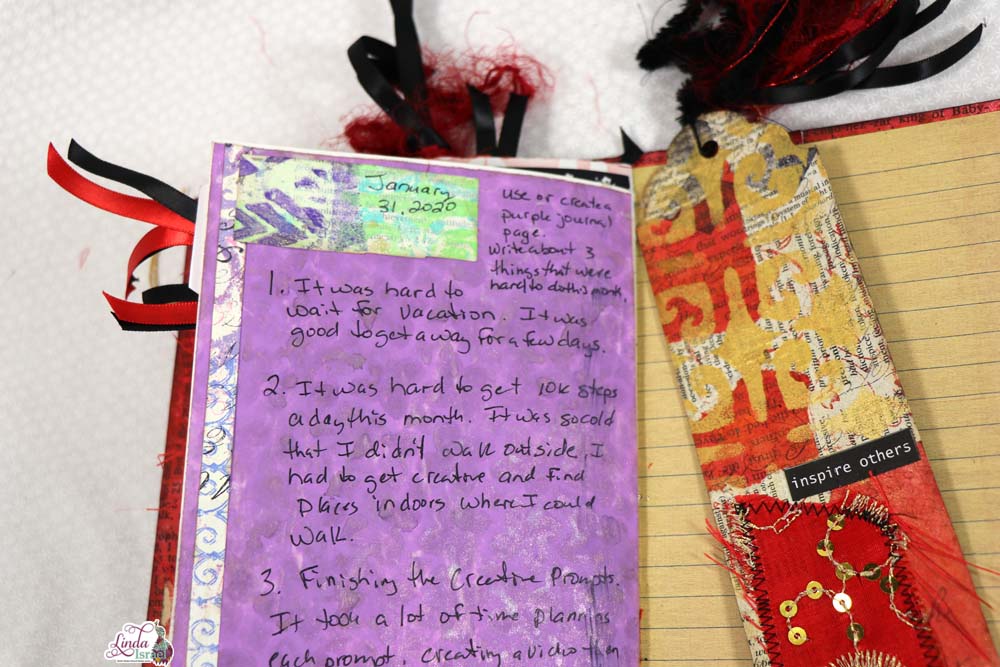 January
31, 2020
use or create a
purple journal
page.
Write about 3
things that were
hard to do this month.
1. It was hard to
wait for vacation. It was
good to get away for a few days.
2. It was hard to get 10k steps
a day this month. It was so cold
that I didn't walk outside. I
had to get creative and find
places indoors where I could
walk.
3. Finishing the Creative Prompts.
It took a lot of time planning
each prompt, creating a video then
inspire others
king of Baby-
Linda
Israel